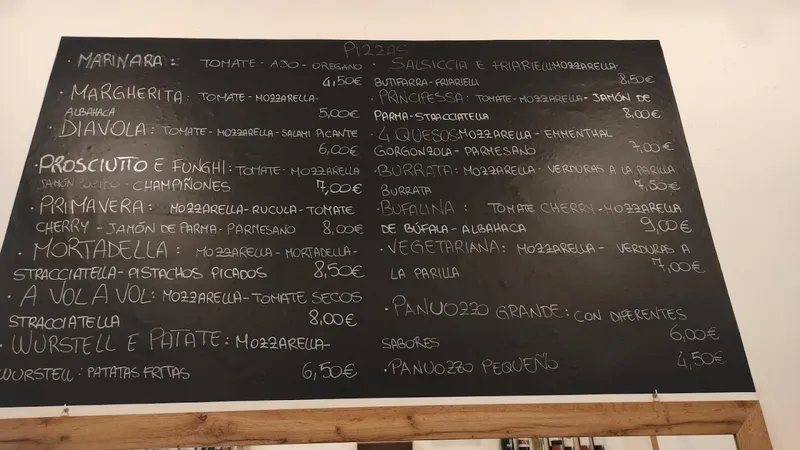 PIZZAS
· MARINARA: TOMATE - AJO - OREGANO
4,50€
· MARGHERITA: TOMATE - MOZZARELLA-
ALBAHACA 5,00€
· DIAVOLA: TOMATE - MOZZARELLA - SALAMI PICANTE
6,00€
· PROSCIUTTO E FUNGHI: TOMATE - MOZZARELLA
JAMÓN - CHAMPIÑONES 7,00€
· PRIMAVERA: MOZZARELLA - RUCULA - TOMATE
CHERRY - JAMÓN DE PARMA - PARMESANO 8,00€
· MORTADELLA: MOZZARELLA - MORTADELLA-
STRACCIATELLA - PISTACHOS PICADOS 8,50€
· A VOL A VOL: MOZZARELLA - TOMATE SECOS
STRACCIATELLA 8,00€
· WURSTELL E PATATE: MOZZARELLA-
WURSTELL: PATATAS FRITAS 6,50€
· SALSICCIA E FRIARIELLI MOZZARELLA
BUTIFARRA - FRIARIELLI 8,50€
· PRINCIPESSA: TOMATE - MOZZARELLA - JAMÓN DE
PARMA - STRACCIATELLA 8,00€
· 4 QUESOS MOZZARELLA - EMMENTHAL
GORGONZOLA - PARMESANO 7,00€
· BURRATA: MOZZARELLA - VERDURAS A LA PARILLA
BURRATA 7,50€
· BUFALINA: TOMATE CHERRY - MOZZARELLA
DE BÚFALA - ALBAHACA 9,00€
· VEGETARIANA: MOZZARELLA - VERDURAS A
LA PARILLA 7,00€
· PANUOZZO GRANDE: CON DIFERENTES
SABORES 6,00€
· PANUOZZO PEQUEÑO 4,50€